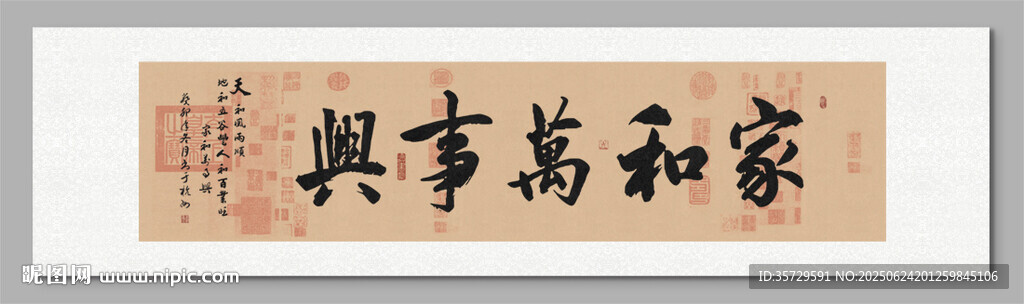 家和萬事興
天和風雨順
地和五谷豐人和百業旺
家和萬事興
癸卯年冬月書於杭州
昵图网 www.nipic.com
ID:35729591 NO:20250624201259845106